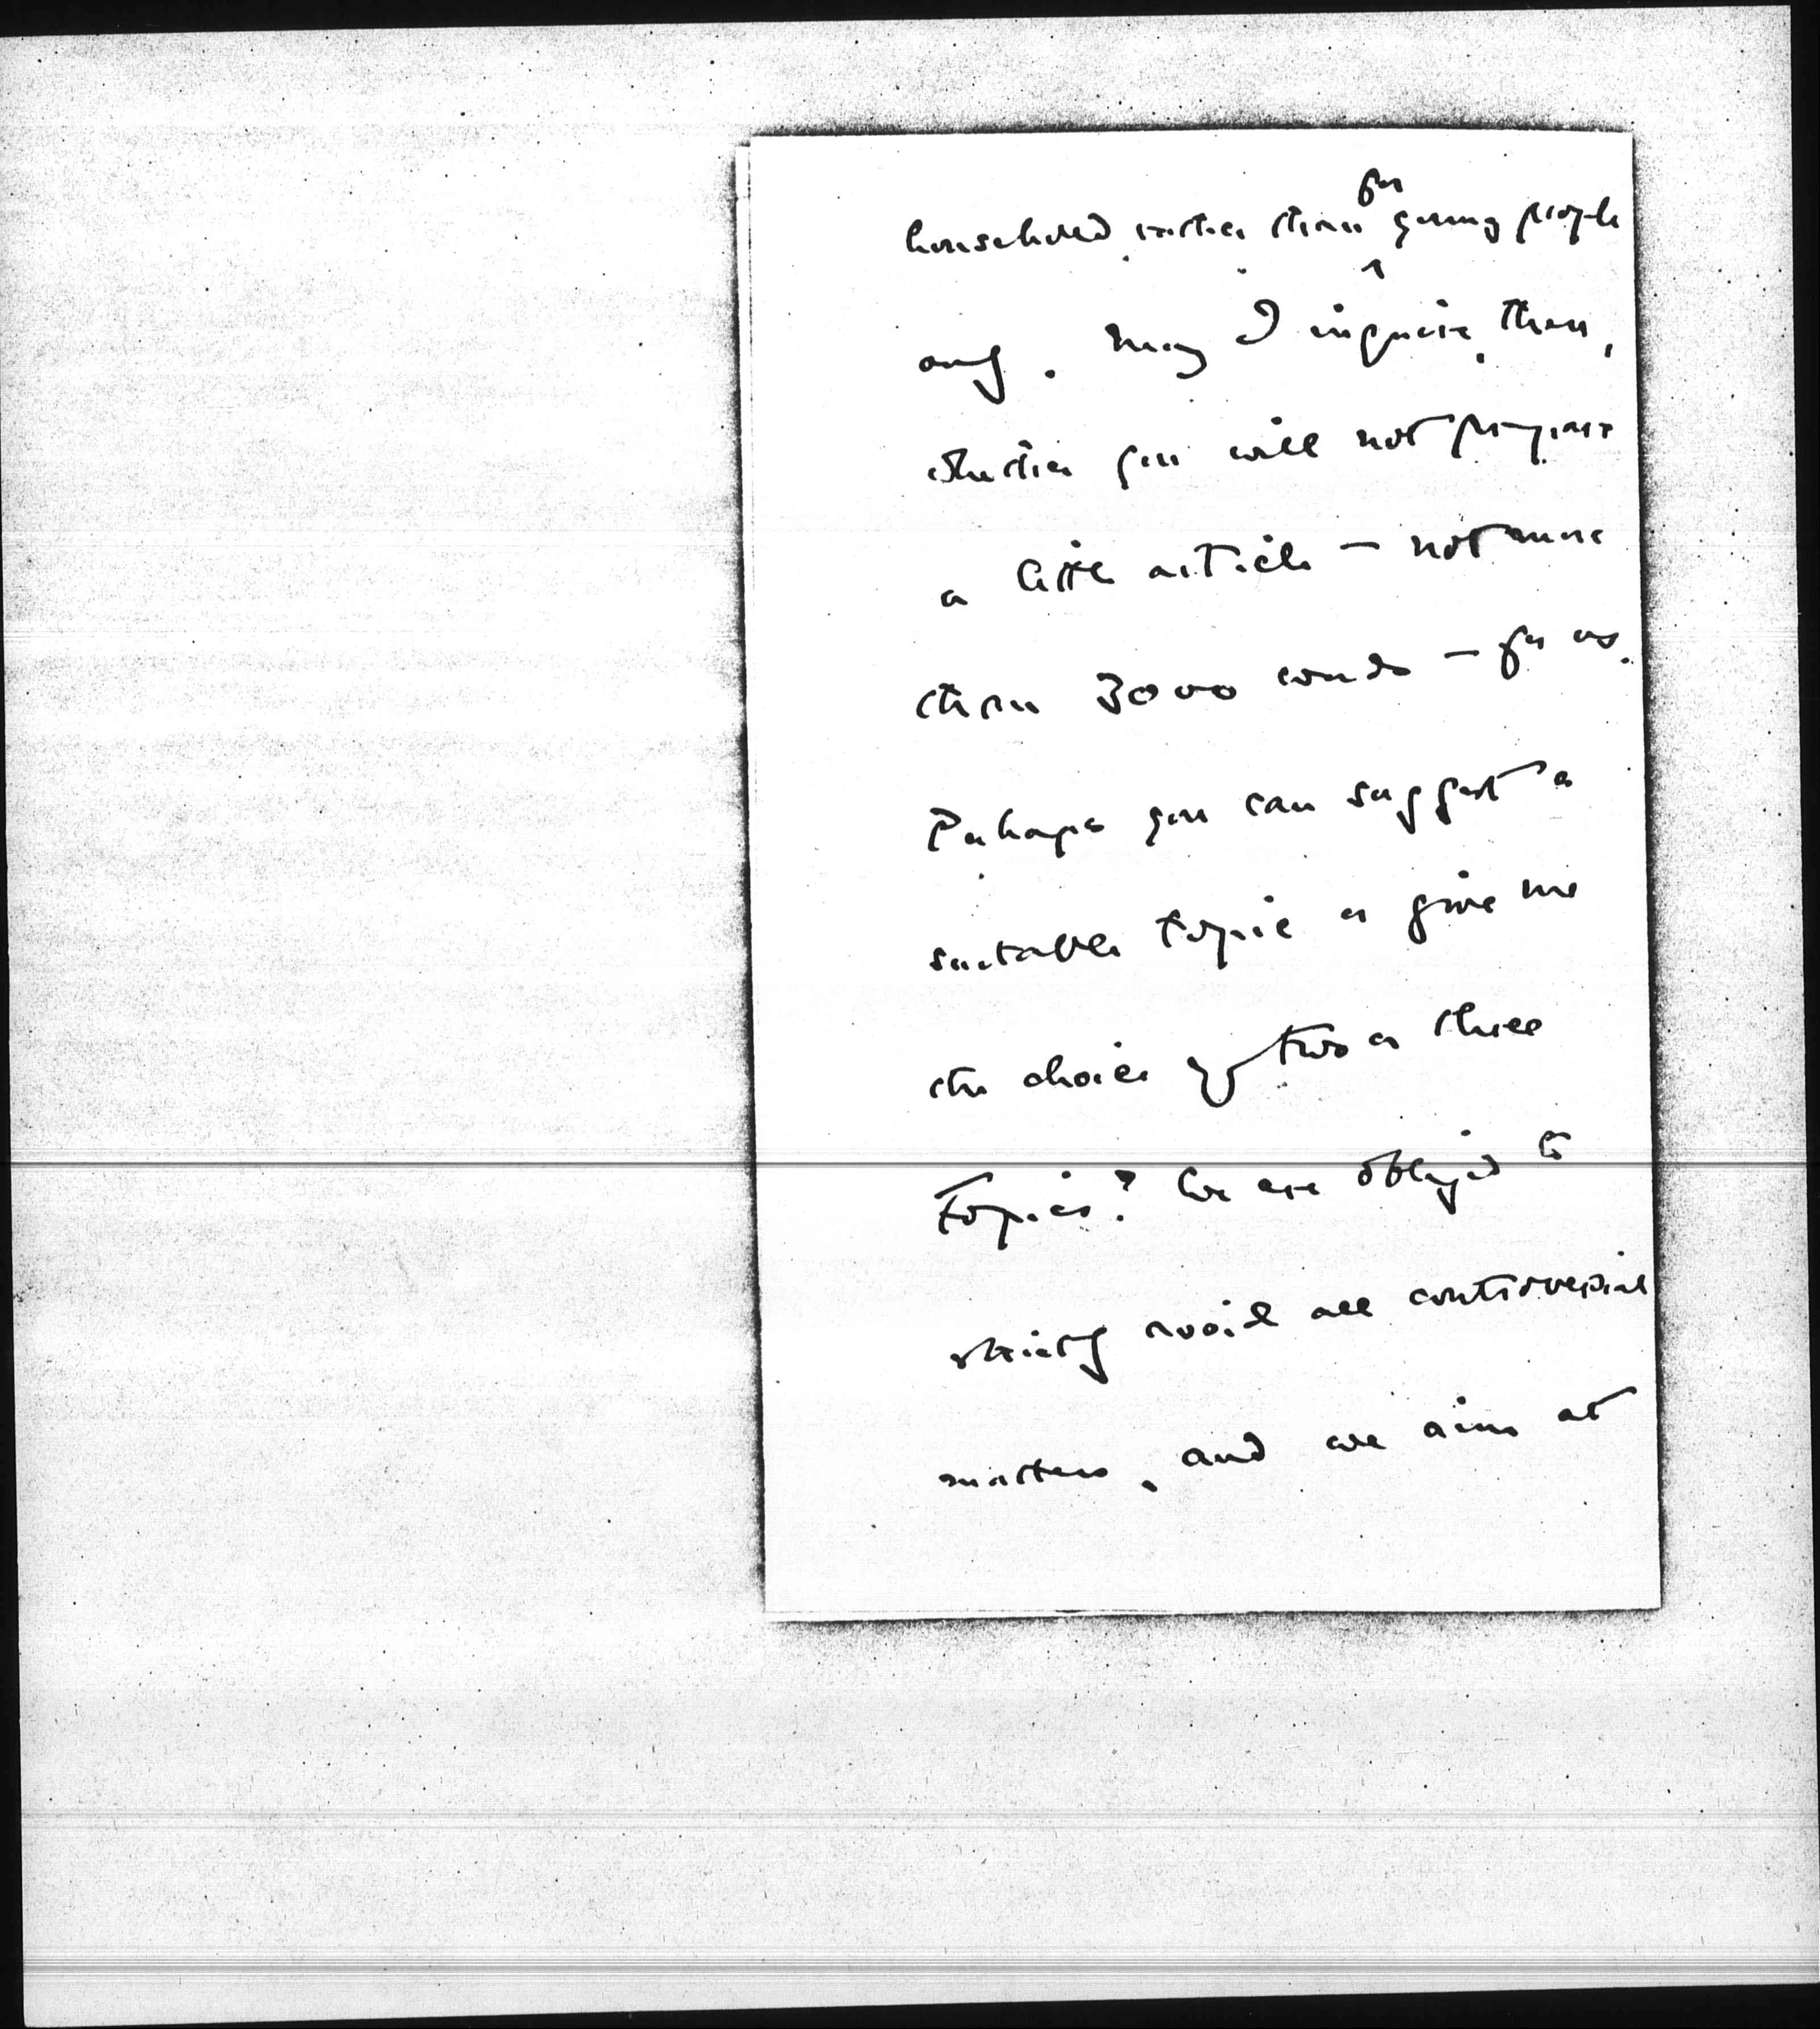 household rather than for young people
only. May I inquire, then,
whether you will not prepare
a little article — not more
than 3000 words — for us.
Perhaps you can suggest a
suitable topic or give me
the choice of two or three
topics? We are obliged to
strictly avoid all controversial
matters, and we aim at